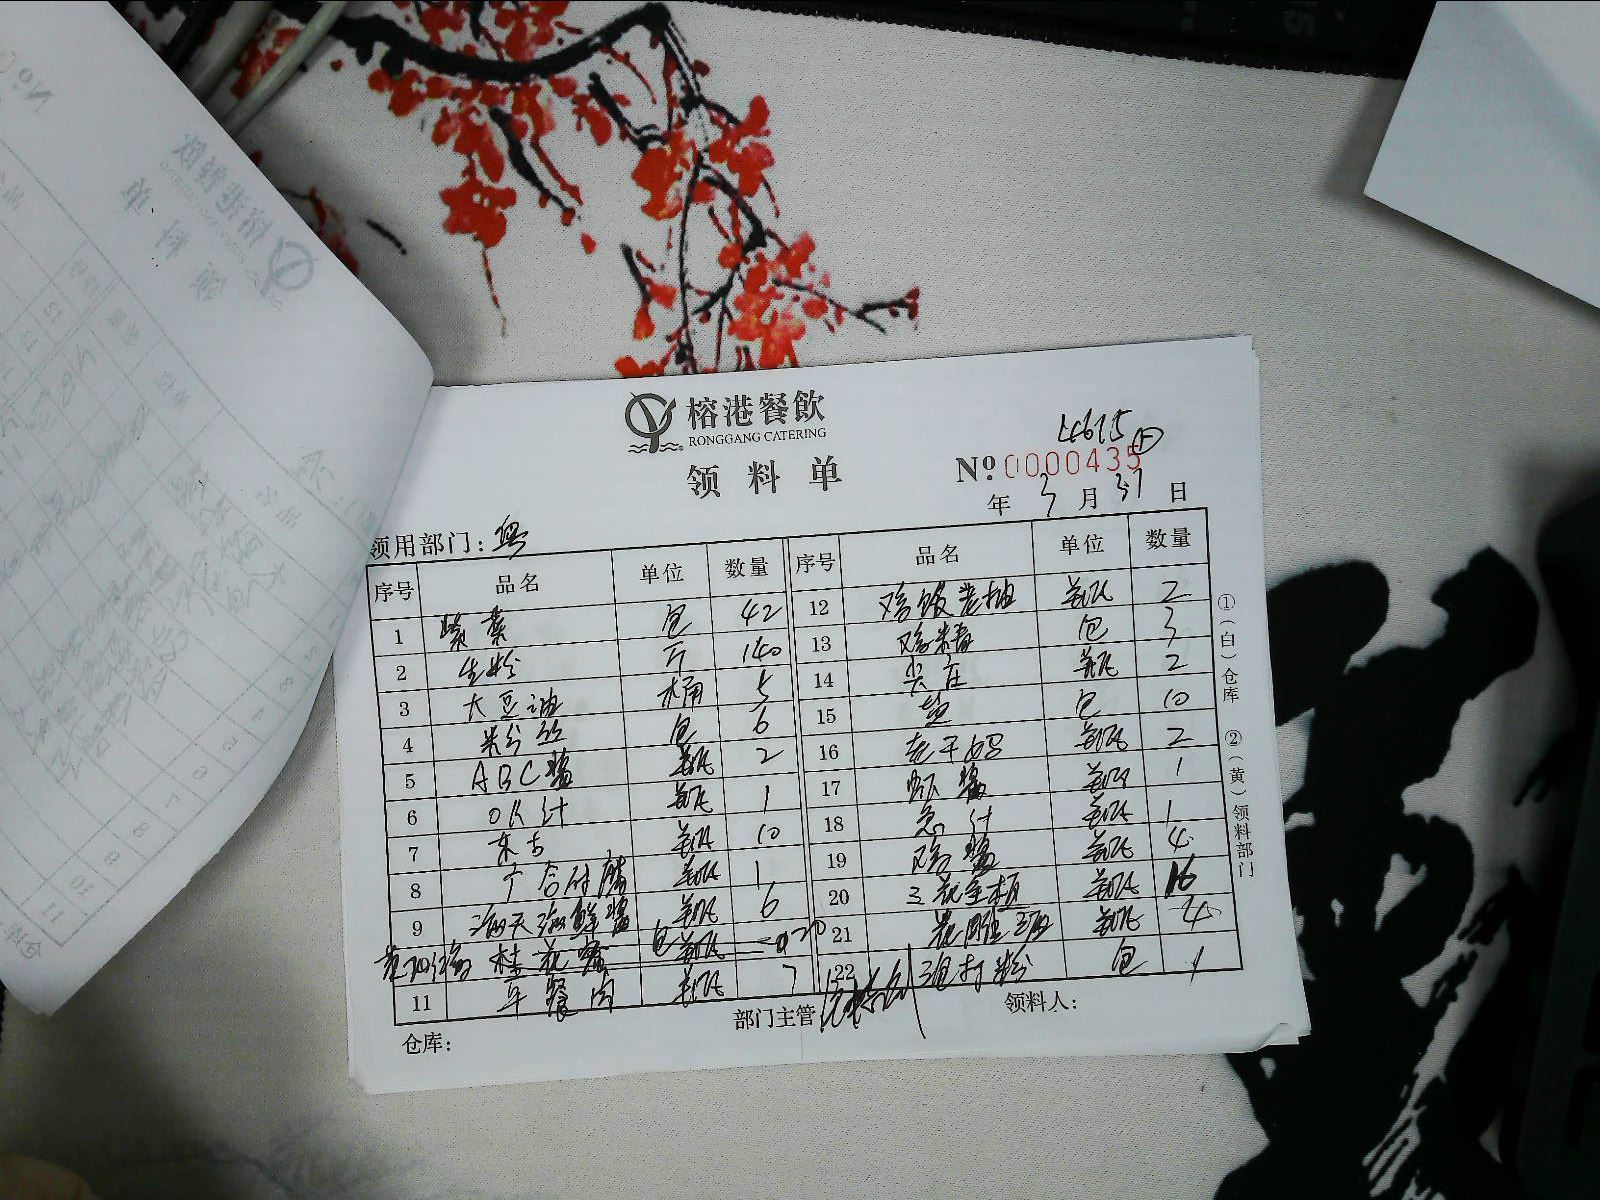 榕港餐飲
RONGGANG CATERING
领料单
4615
№ 0000435
年 3 月 37 日
领用部门: 粤
序号 品名 单位 数量 序号 品名 单位 数量
1 紫菜 包 42
2 生粉 斤 140
3 大豆油 桶 5
4 粉丝 包 6
5 ABC酱 瓶 2
6 OK汁 瓶 1
7 东古 瓶 10
8 瓶 1
9 海天海鲜酱 瓶 6
桂花 包 20
11 午餐肉 瓶 7
12 老抽 瓶 2
13 鸡精 包 3
14 尖庄 瓶 2
15 盐 包 10
16 老干妈 瓶 2
17 虾酱 瓶 1
18 汁 瓶 1
19 鸡酱 瓶 4
20 三花 瓶 16
21 花雕 瓶 4
22 粉 包 1
①(白)仓库 ②(黄)领料部门
仓库: 部门主管 领料人: